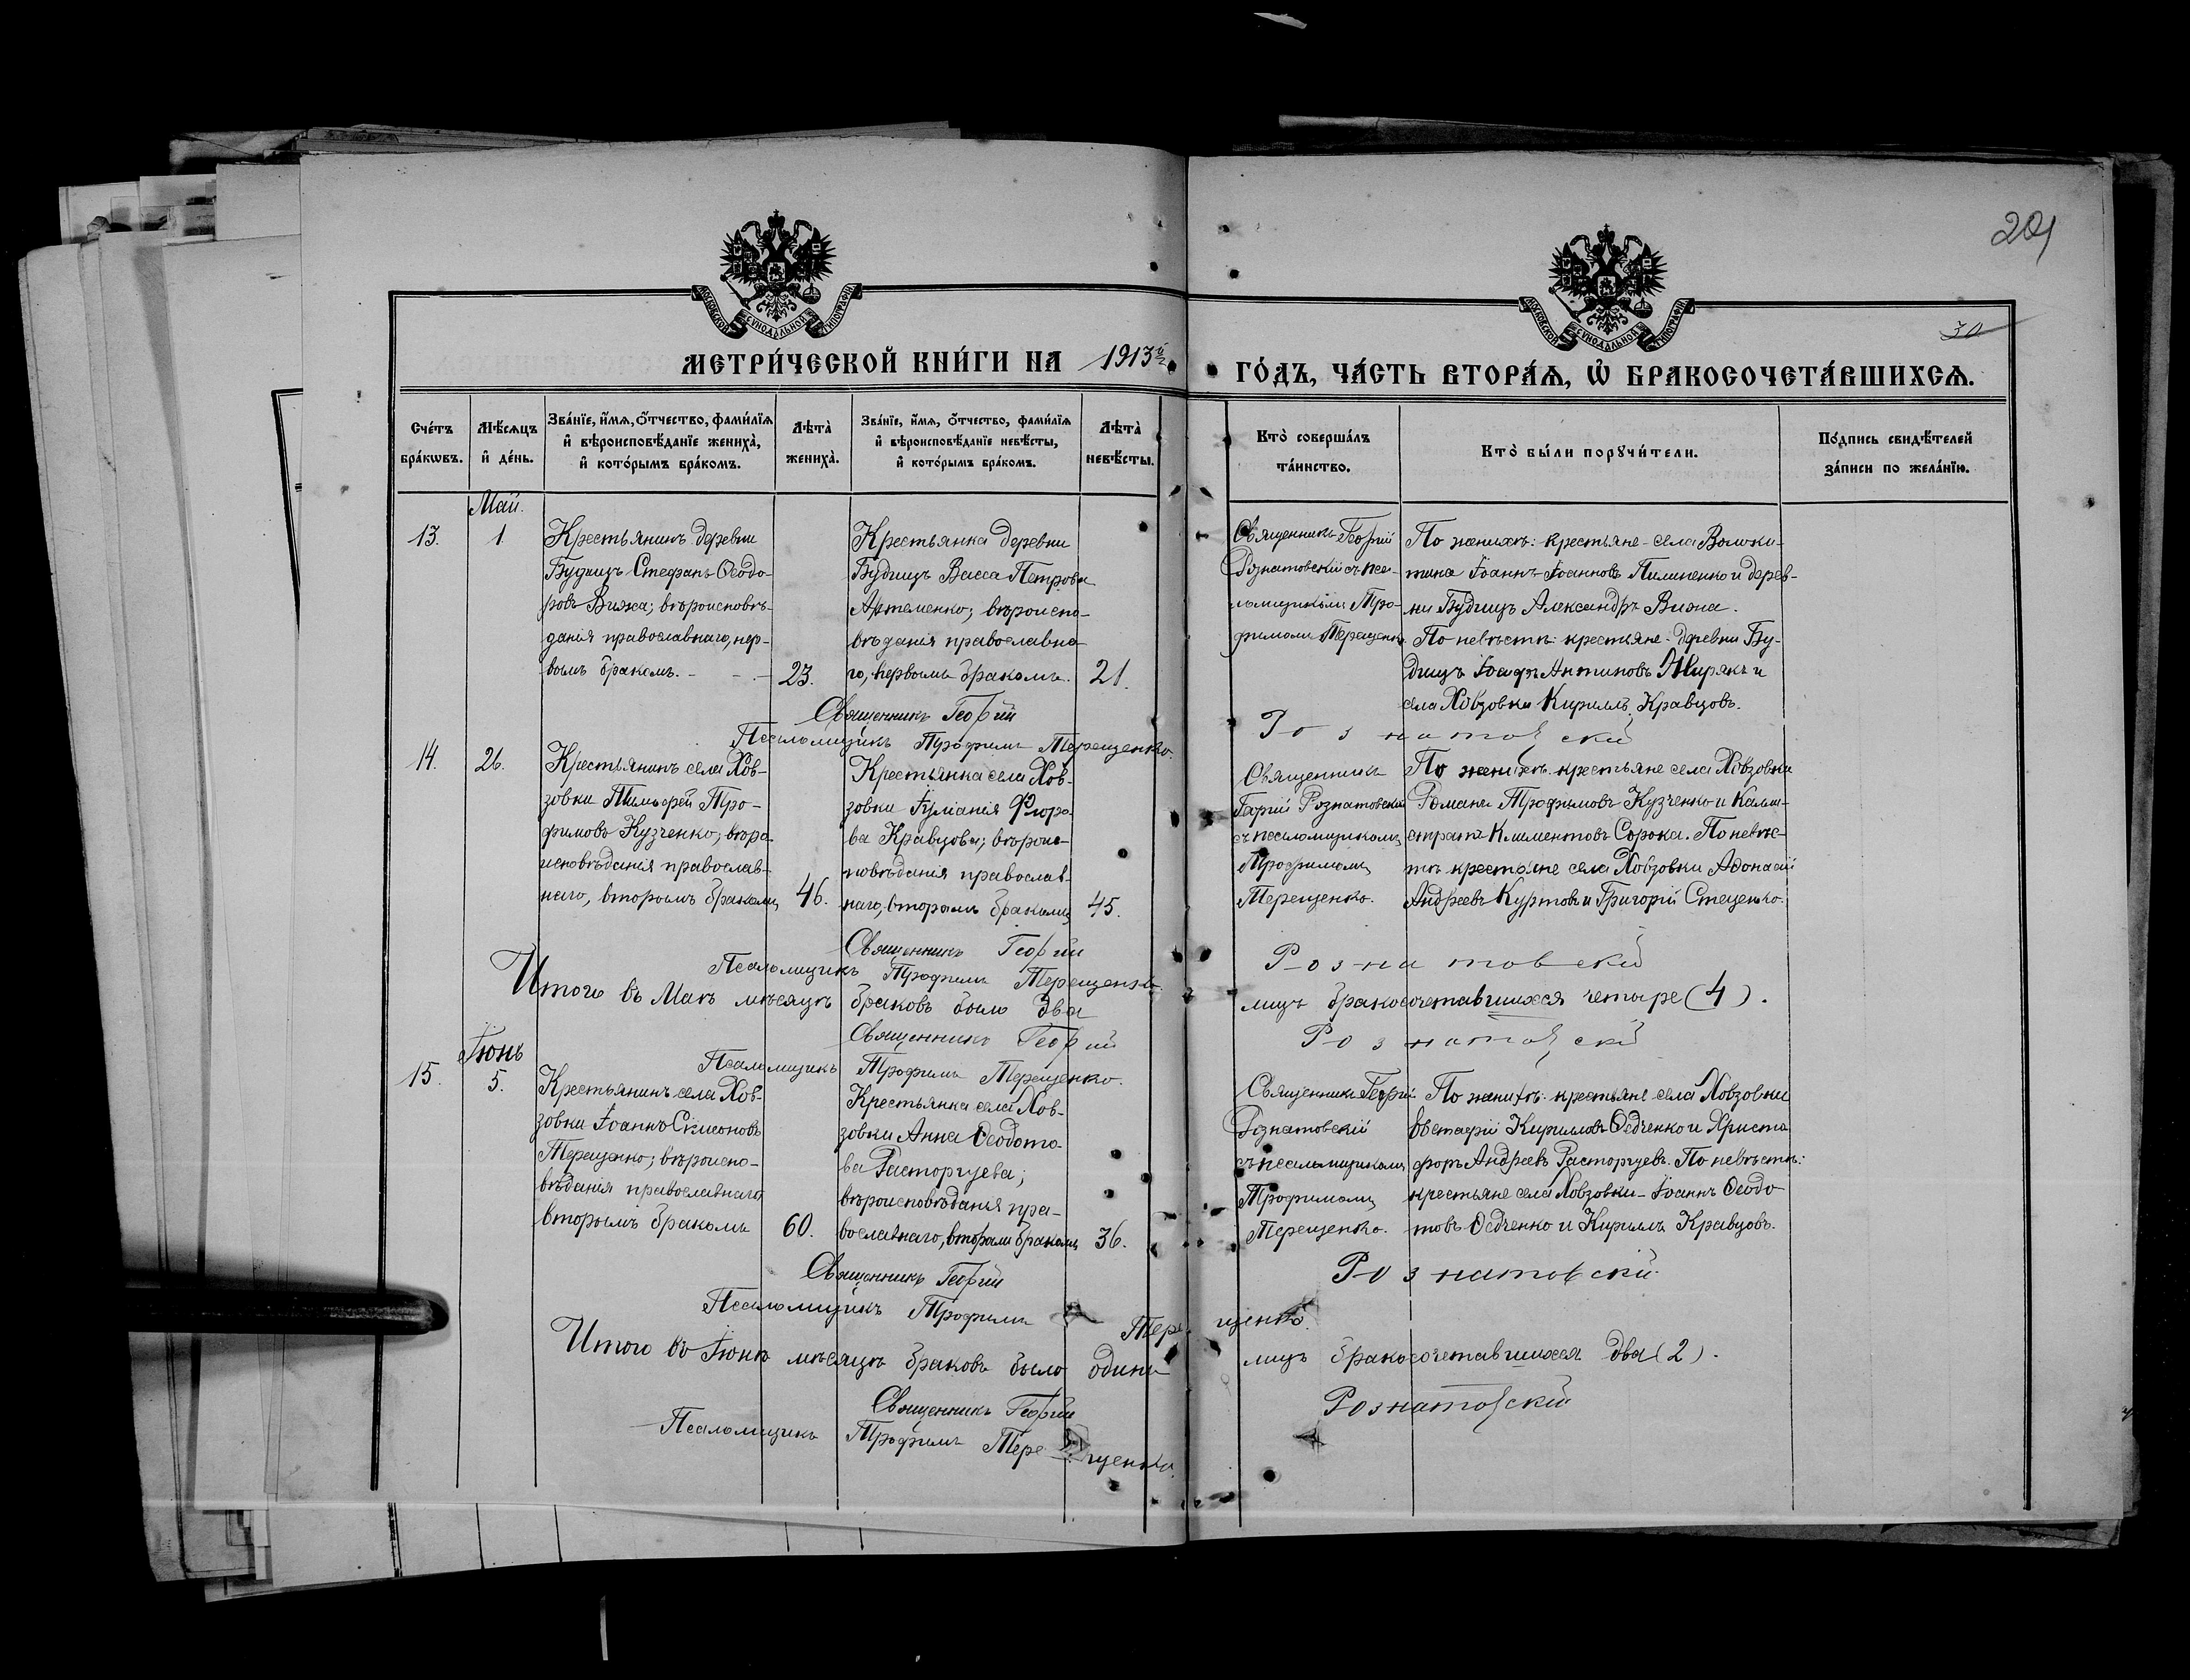 204
30
МОСКОВСКОЙ СѴНОДАЛЬНОЙ ТИПОГРАФІИ
МОСКОВСКОЙ СѴНОДАЛЬНОЙ ТИПОГРАФІИ
МЕТРИ́ЧЕСКОЙ КНИ́ГИ НА 1913й
ГО́ДЪ, ЧА́СТЬ ВТОРА́Ѧ, Ѡ҆ БРАКОСОЧЕТА́ВШИХСѦ.
Сче́тъ
бра́кѡвъ.
Мѣ́сѧцъ
и҆ де́нь.
Зва́нїе, и҆́мѧ, ѻ҆́тчество, фами́лїѧ
и҆ вѣроисповѣ́данїе жениха̀,
и҆ кото́рымъ бра́комъ.
Лѣта̀
жениха̀.
Зва́нїе, и҆́мѧ, ѻ҆́тчество, фами́лїѧ
и҆ вѣроисповѣ́данїе невѣ́сты,
и҆ кото́рымъ бра́комъ.
Лѣта̀
невѣ́сты.
Кто̀ соверша́лъ
та́инство.
Кто̀ бы́ли порꙋчи́тели.
По́дпись свидѣ́телей
за́писи по жела́нїю.
Май.
13.
1
Крестьянинъ деревни
Будищъ Стефанъ Ѳеодо-
ровъ Вижа; вѣроисповѣ-
данія православнаго, пер-
вымъ бракомъ. - - -
23.
Крестьянка деревни
Будищъ Васса Петрова
Артеменко; вѣроиспо-
вѣданія православна
го, первымъ бракомъ.
21.
Священникъ Георгій
Рознатовскій съ псa-
ломщикомъ Тро-
фимомъ Терещенко
По женихѣ: крестьяне - села
тина Іоаннъ Іоанновъ Пилипенко и дерев-
ни Будищъ Александръ Вижа.
По невѣстѣ: крестьяне - деревни Бу-
дищъ Антиповъ Жирякъ и
села Ховзовки Кириллъ Кравцовъ.
Священникъ Георгій Рознатовскій
Псаломщикъ Трофимъ Терещенко.
14.
26.
Крестьянинъ села Хов-
зовки Тимофей Тро-
фимовъ Кузченко; вѣро
исповѣданія православ-
наго, вторымъ бракомъ
46.
Крестьянка села Хов-
зовки Іуліанія Флоро
ва Кравцова; вѣроис-
повѣданія православ-
наго, вторымъ бракомъ
45.
Священникъ
Георгій Рознатовскій
съ псаломщикомъ
Трофимомъ
Терещенко.
По женихѣ: крестьяне села Ховзовки
Романъ Трофимовъ Кузченко и Калли-
стратъ Климентовъ Сорока. По невѣс-
тѣ крестьяне села Ховзовки Афонасій
Андреевъ Куртовъ и Григорій Стеценко.
Священникъ Георгій Рознатовскій
Псаломщикъ Трофимъ Терещенко
Итого въ Маѣ мѣсяцѣ браковъ было два лицъ бракосочетавшихся четыре (4).
Священникъ Георгій Рознатовскій
Псаломщикъ Трофимъ Терещенко.
Іюнь
15.
5.
Крестьянинъ села Хов-
зовки Іоаннъ Симоновъ
Терещенко; вѣроиспо-
вѣданія православнаго
вторымъ бракомъ
60.
Крестьянка села Хов-
зовки Анна Ѳеодото
ва Расторгуева;
вѣроисповѣданія пра-
вославнаго, вторымъ бракомъ
36.
Священникъ Георгій
Рознатовскій
съ псаломщикомъ
Трофимомъ
Терещенко.
По женихѣ: крестьяне села Ховзовки
Евстафій Кирилловъ Ѳедченко и Христо
форъ Андреевъ Расторгуевъ. По невѣстѣ:
крестьяне села Ховзовки - Іоаннъ Ѳеодо
товъ Ѳедченко и Кириллъ Кравцовъ.
Священникъ Георгій Рознатовскій
Псаломщикъ Трофимъ Терещенко.
Итого въ Іюнѣ мѣсяцѣ браковъ было одинъ лицъ бракосочетавшихся два (2).
Священникъ Георгій Рознатовскій
Псаломщикъ Трофимъ Терещенко.